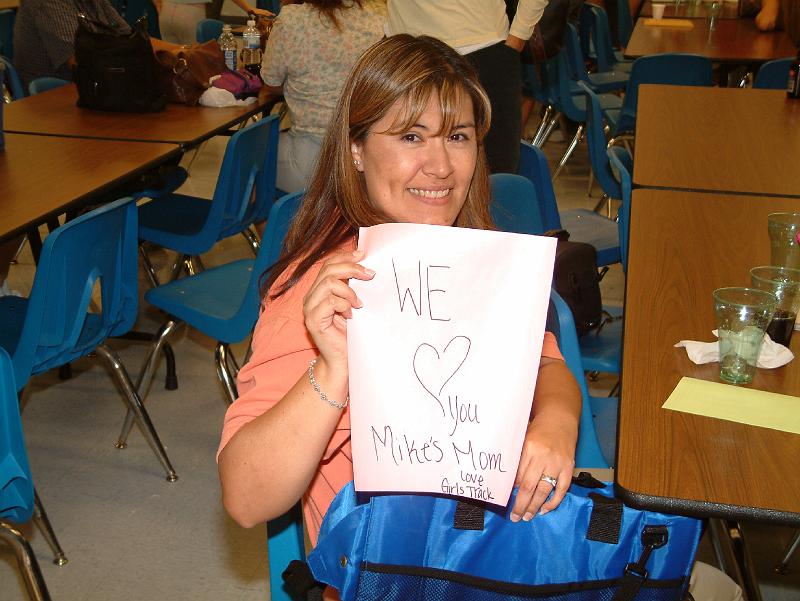 WE
♡
You
Mike's Mom
Love
Girls Track